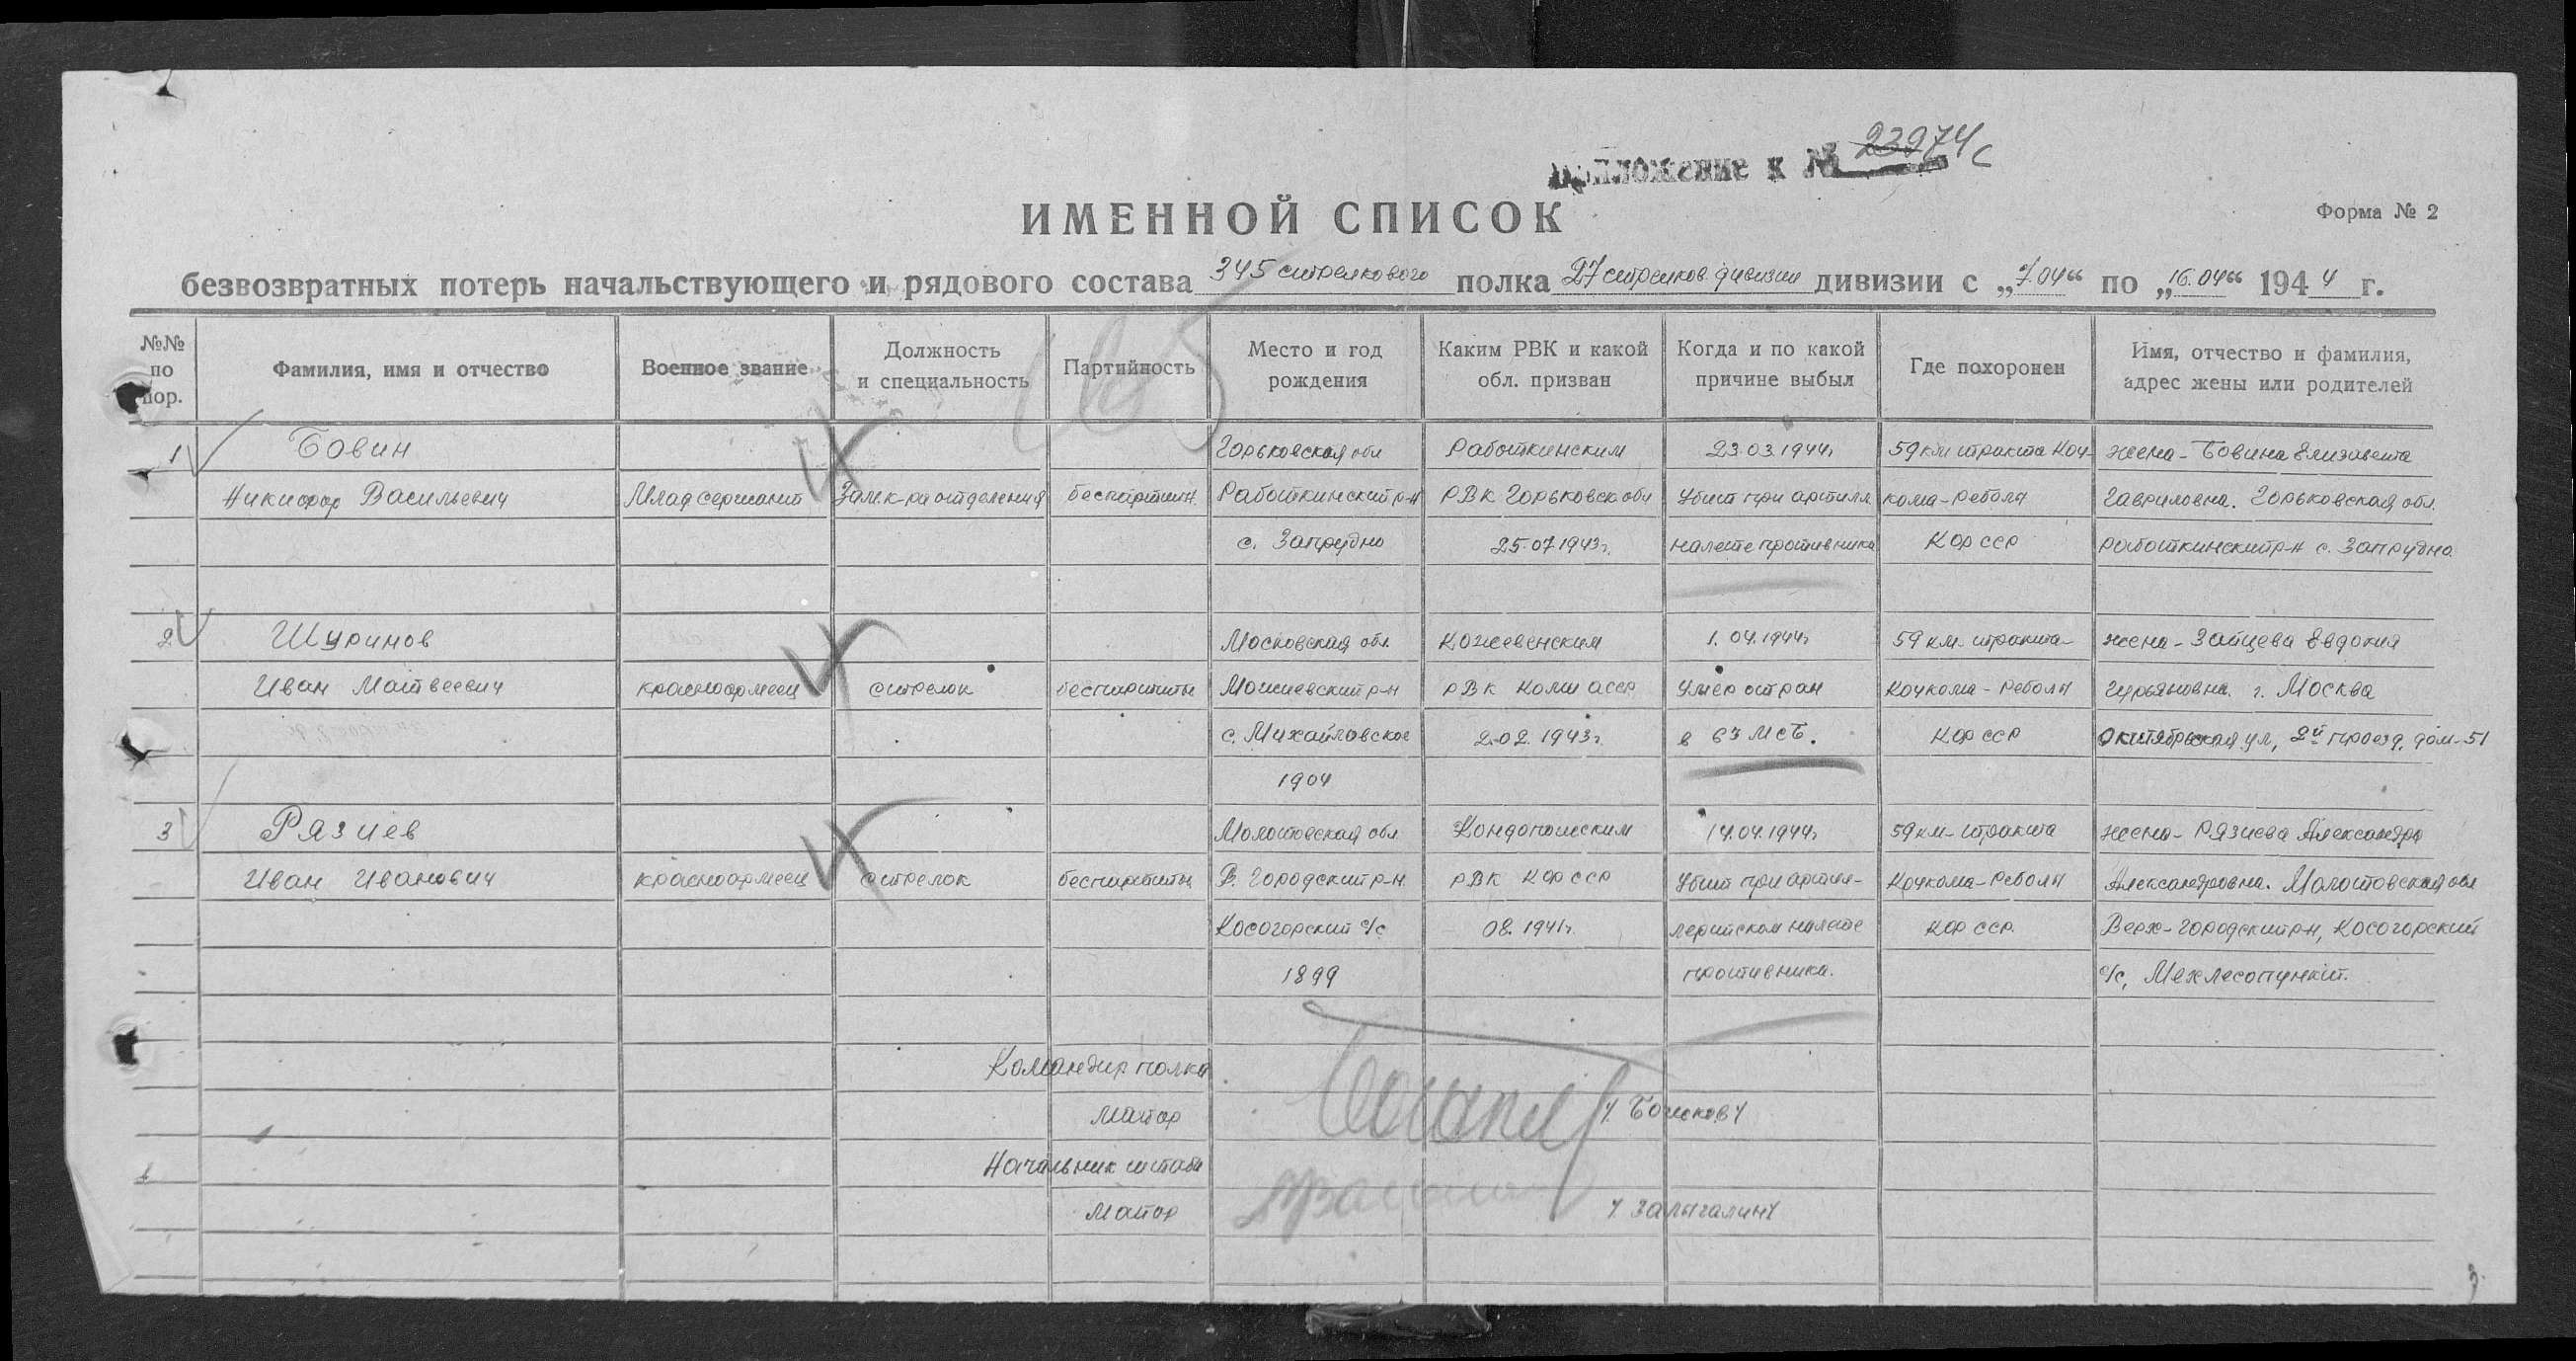 Приложение к № 23974с
ИМЕННОЙ СПИСОК
Форма № 2
безвозвратных потерь начальствующего и рядового состава 345 стрелкового полка 27 стрелков. дивизии дивизии с „7.04“ по „16.04“ 1944 г.
№№ по пор.
Фамилия, имя и отчество
Военное звание
Должность и специальность
Партийность
Место и год рождения
Каким РВК и какой обл. призван
Когда и по какой причине выбыл
Где похоронен
Имя, отчество и фамилия, адрес жены или родителей
1 Бовин Горьковская обл Работкинским 23.03.1944г 59 км тракта Коч- жена - Бовина Елизавета
Никифор Васильевич Млад сержант Зам.к-ра отделения беспартийн. Работкинский р-н РВК Горьковск обл Убит при артилл. кома-Реболы Гавриловна. Горьковская обл.
с. Запрудно 25.07.1943г. налете противника КФССР Работкинский р-н с. Запрудно
2 Шуринов Московская обл. Кожевенским 1.04.1944г 59 км. тракта- жена - Зайцева Евдокия
Иван Матвеевич красноармеец стрелок беспартийн Можаевский р-н РВК Коми АССР Умер от ран Кочкома - Реболы Гурьяновна. г. Москва
с. Михайловское 2.02.1943г. в 63 МСБ. КФССР Октябрьская ул, 2й проезд, дом-51
1904
3 Рязиев Молотовская обл Кондопожским 14.04.1944г 59 км- тракта жена - Рязиева Александра
Иван Иванович красноармеец стрелок беспартийн В. Городский р-н. РВК КФССР Убит при артил- Кочкома-Реболы Александровна. Молотовская обл
Косогорский с/с 08.1941г. лерийском налете КФССР. Верх-Городский р-н, Косогорский
1899 противника. с/с, Мехлесопункт.
Командир полка
Майор / Божков /
Начальник штаба
Майор / Залыгалин /
3